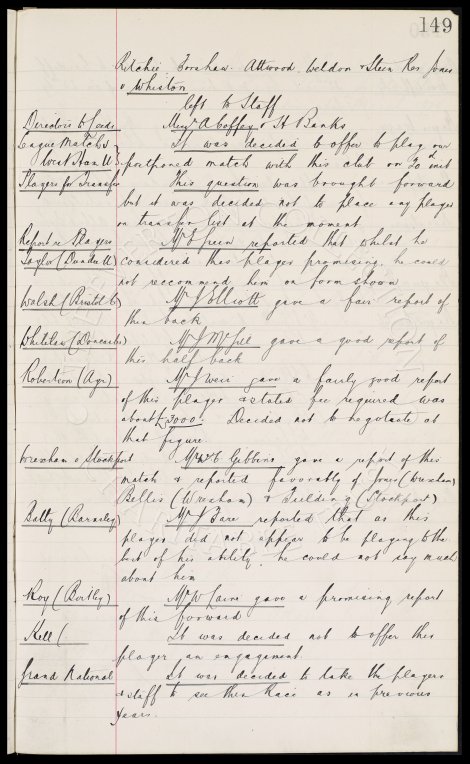 149
Ritchie Forshaw. Attwood Weldon & Stein Res Jones
& Whiston
left to Staff
Directors to Leeds Messrs A Coffey & H Banks
League Match v It was decided to offer to play our
West Ham U. postponed match with this club on 20 inst
Players for Transfer This question was brought forward
but it was decided not to place any player
on transfer list at the moment
Report re Players Mr Green reported that whilst he
Taylor (Dundee U) considered this player promising, he could
not recommend him on form shown
Walsh (Bristol C) Mr J Elliott gave a fair report of
this back
Whitelaw (Doncaster) Mr J McGill gave a good report of
this half back
Robertson (Ayr) Mr J Weir gave a fairly good report
of this player & stated fee required was
about £3000. Decided not to negotiate at
that figure.
Wrexham v Stockport Mr W C Gibbins gave a report of this
match & reported favorably of Jones (Wrexham)
Bellis (Wrexham) & (Stockport)
Batty (Barnsley) Mr J Bare reported that as this
player did not appear to be playing to the
best of his ability, he could not say much
about him
Roy (Bortley) Mr W gave a promising report
of this forward
Kell (. It was decided not to offer this
player an engagement.
Grand National It was decided to take the players
& staff to see this Race as in previous
years.